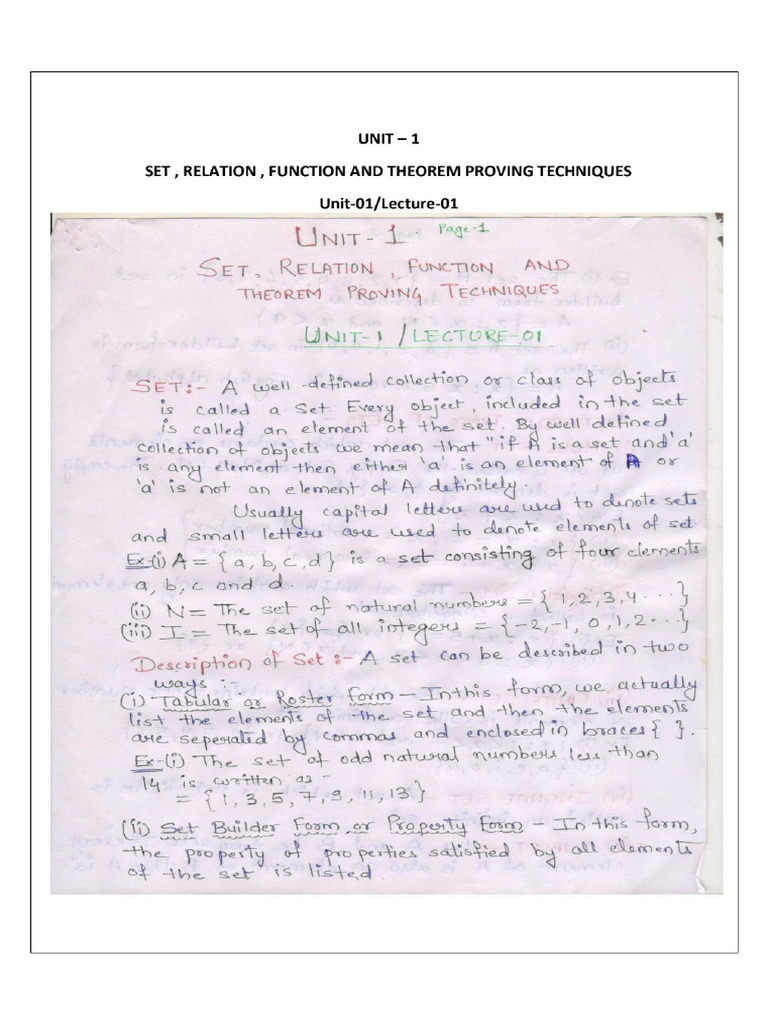 UNIT – 1
SET , RELATION , FUNCTION AND THEOREM PROVING TECHNIQUES
Unit-01/Lecture-01
UNIT-1 Page-1
SET, RELATION, FUNCTION AND
THEOREM PROVING TECHNIQUES
UNIT-1 / LECTURE-01
SET:- A well-defined collection or class of objects
is called a Set. Every object, included in the set
is called an element of the set. By well defined
collection of objects we mean that "if A is a set and 'a'
is any element then either 'a' is an element of A or
'a' is not an element of A definitely.
Usually capital letters are used to denote sets
and small letters are used to denote elements of set
Ex-(i) A = {a, b, c, d} is a set consisting of four elements
a, b, c and d.
(ii) N = The set of natural numbers = {1, 2, 3, 4 ....}
(iii) I = The set of all integers = {-2, -1, 0, 1, 2 ...}
Description of Set :- A set can be described in two
ways :-
(i) Tabular or Roster Form – In this form, we actually
list the elements of the set and then the elements
are seperated by commas and enclosed in braces { }.
Ex-(i) The set of odd natural numbers less than
14 is written as -
= {1, 3, 5, 7, 9, 11, 13}
(ii) Set Builder Form or Property Form – In this form,
the property of properties satisfied by all elements
of the set is listed.